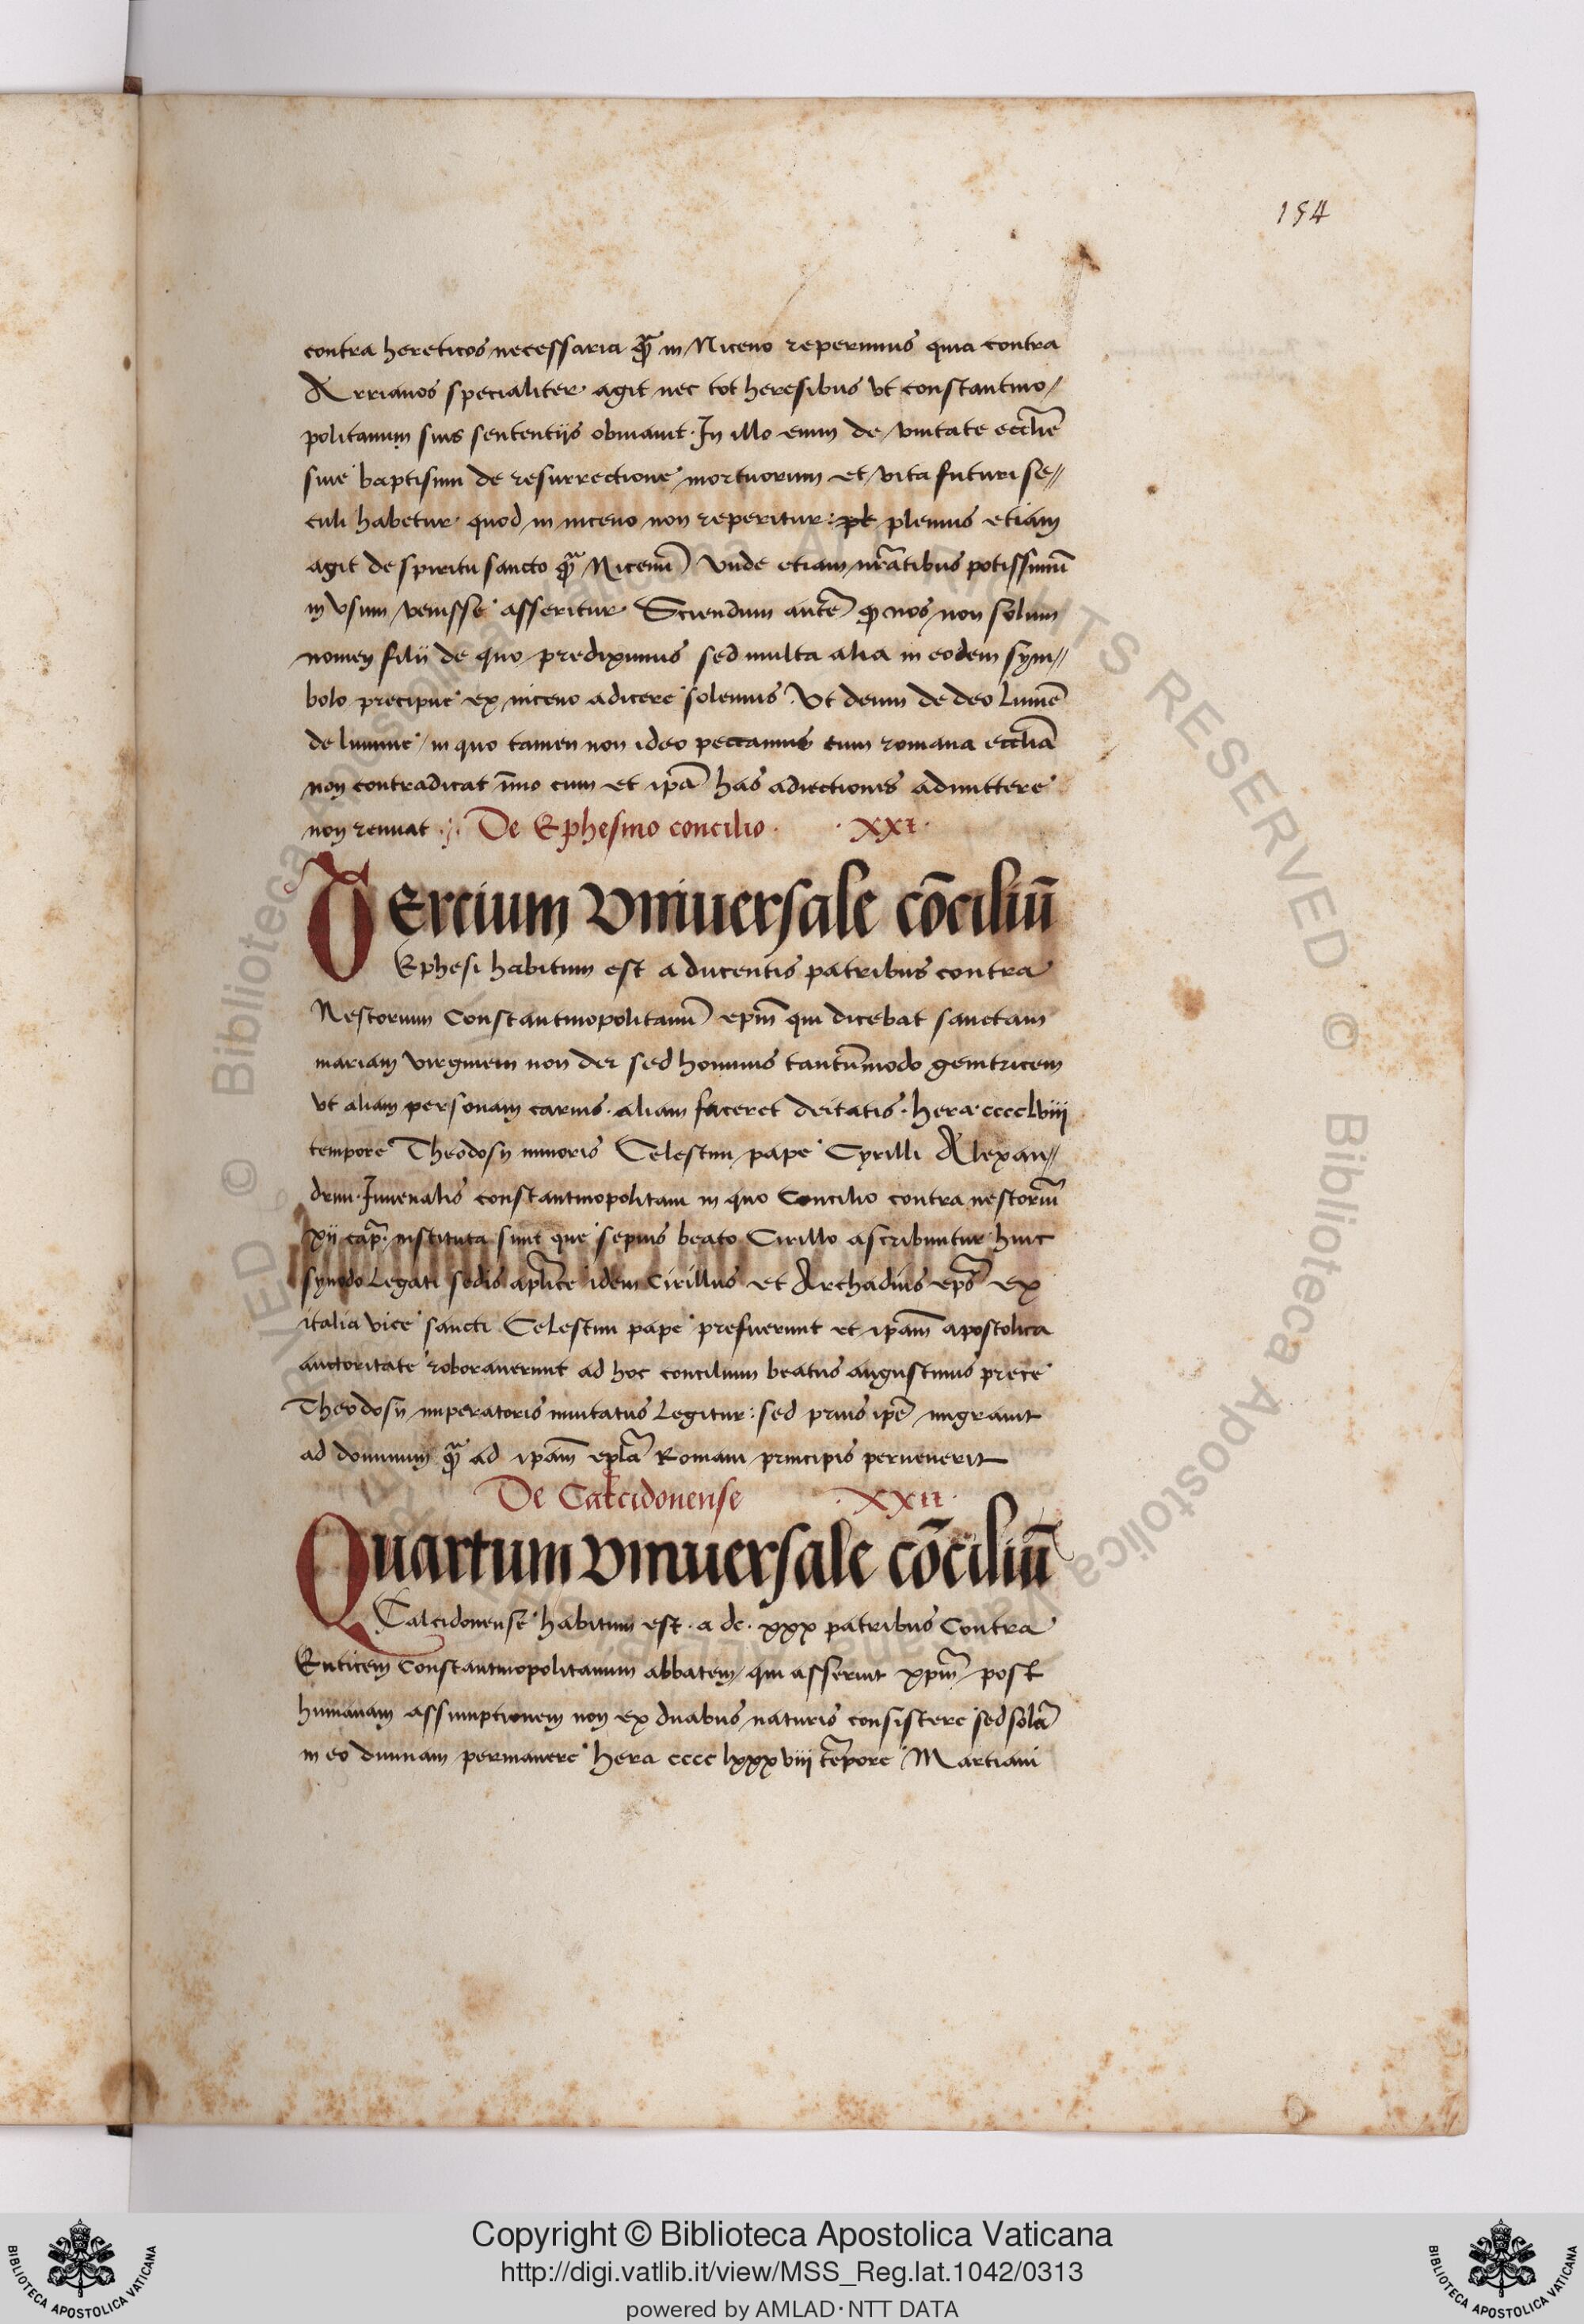 154
contra hereticos necessaria qᷓ in Niceno reperimus quia contra
Arrianos specialiter agit nec tot heresibus vt constantino/
politanum suis sententijs obuiauit. In illo enim de vnitate eccl̄ie
siue baptismi de resurrectione mortuorum et vita futuri se//
culi habetur quod in niceno non reperitur: plenius etiam
agit de spiritu sancto qᷓ Nicenū Vnde etiam potissimū
in vsum venisse asseritur. Sciendum autē ꝙ nos non solum
nomen filii de quo prediximus sed multa alia in eodem sym//
bolo precipue ex niceno adicere solemus. Vt deum de deo Lumē
de lumine / in quo tamen non ideo peccamus cum romana eccliā
non contradicat īmo cum et ipā has adiectiones admittere
non renuat ·:· De Ephesino concilio · · xxi ·
TErcium Vniuersale cōciliū
Ephesi habitum est a ducentis patribus contra
Nestorium Constantinopolitanū ep̄m qui dicebat sanctam
mariam virginem non dei sed hominis tantūmodo genitricem
vt aliam personam carnis · aliam faceret deitatis · hera · cccclviii
tempore Theodosij minoris Celestini pape Cyrilli Alexan//
drini · Iuuenalis constantinopolitani in quo Concilio contra nestoriū
xij cap̄. instituta sunt que sepius beato Cirillo ascribuntur huic
synodo Legati sedis ap̄lice idem Cirillus et Archadius ep̄s ex
italia vice sancti Celestini pape prefuerunt et ip̄am apostolica
auctoritate roborauerunt ad hoc concilium beatus augustinus prece
Theodosij imperatoris inuitatus Legitur: sed prius ip̄e migrauit
ad dominum qᷓ ad ip̄am ep̄lā Romani principis peruenerit
De Calcidonense · xxii ·
Quartum Vniuersale cōciliū
Calcidonense habitum est · a dc · xxx patribus Contra
Euticem Constantinopolitanum abbatem / qui asseruit xp̄m post
humanam assumptionem non ex duabus naturis consistere sed solā
in eo diuinam permanere hera cccc lxxxviii tēpore Martiani
Copyright © Biblioteca Apostolica Vaticana
http://digi.vatlib.it/view/MSS_Reg.lat.1042/0313
powered by AMLAD·NTT DATA